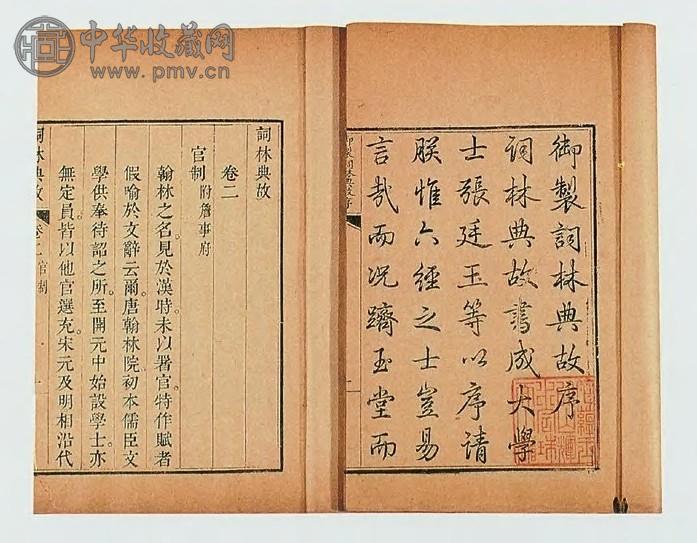 中华收藏网
www.pmv.cn
御製詞林典故序
詞林典故書成大學
士張廷玉等以序請
朕惟六經之士豈易
言哉而況躋玉堂而
詞林典故
卷二
官制附詹事府
翰林之名見於漢時未以署官特作賦者
假喻於文辭云爾唐翰林院初本儒臣文
學供奉待詔之所至開元中始設學士亦
無定員皆以他官選充宋元及明相沿代
詞林典故 卷二官制